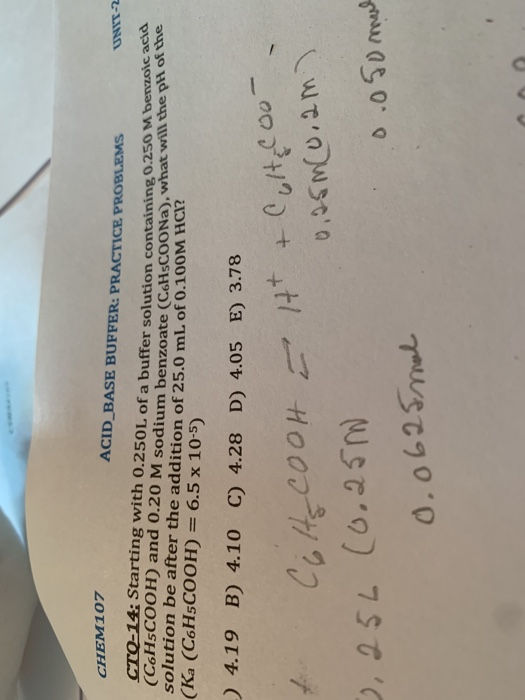 CHEM107 ACID_BASE BUFFER: PRACTICE PROBLEMS UNIT-2
CTQ-14: Starting with 0.250L of a buffer solution containing 0.250 M benzoic acid
(C6H5COOH) and 0.20 M sodium benzoate (C6H5COONa), what will the pH of the
solution be after the addition of 25.0 mL of 0.100M HCl?
(Ka (C6H5COOH) = 6.5 x 10-5)
) 4.19 B) 4.10 C) 4.28 D) 4.05 E) 3.78
C6H5COOH ⇌ H+ + C6H5COO-
.25L (0.25M) 0.25M(0.2M)
0.0625mol 0.050 mol